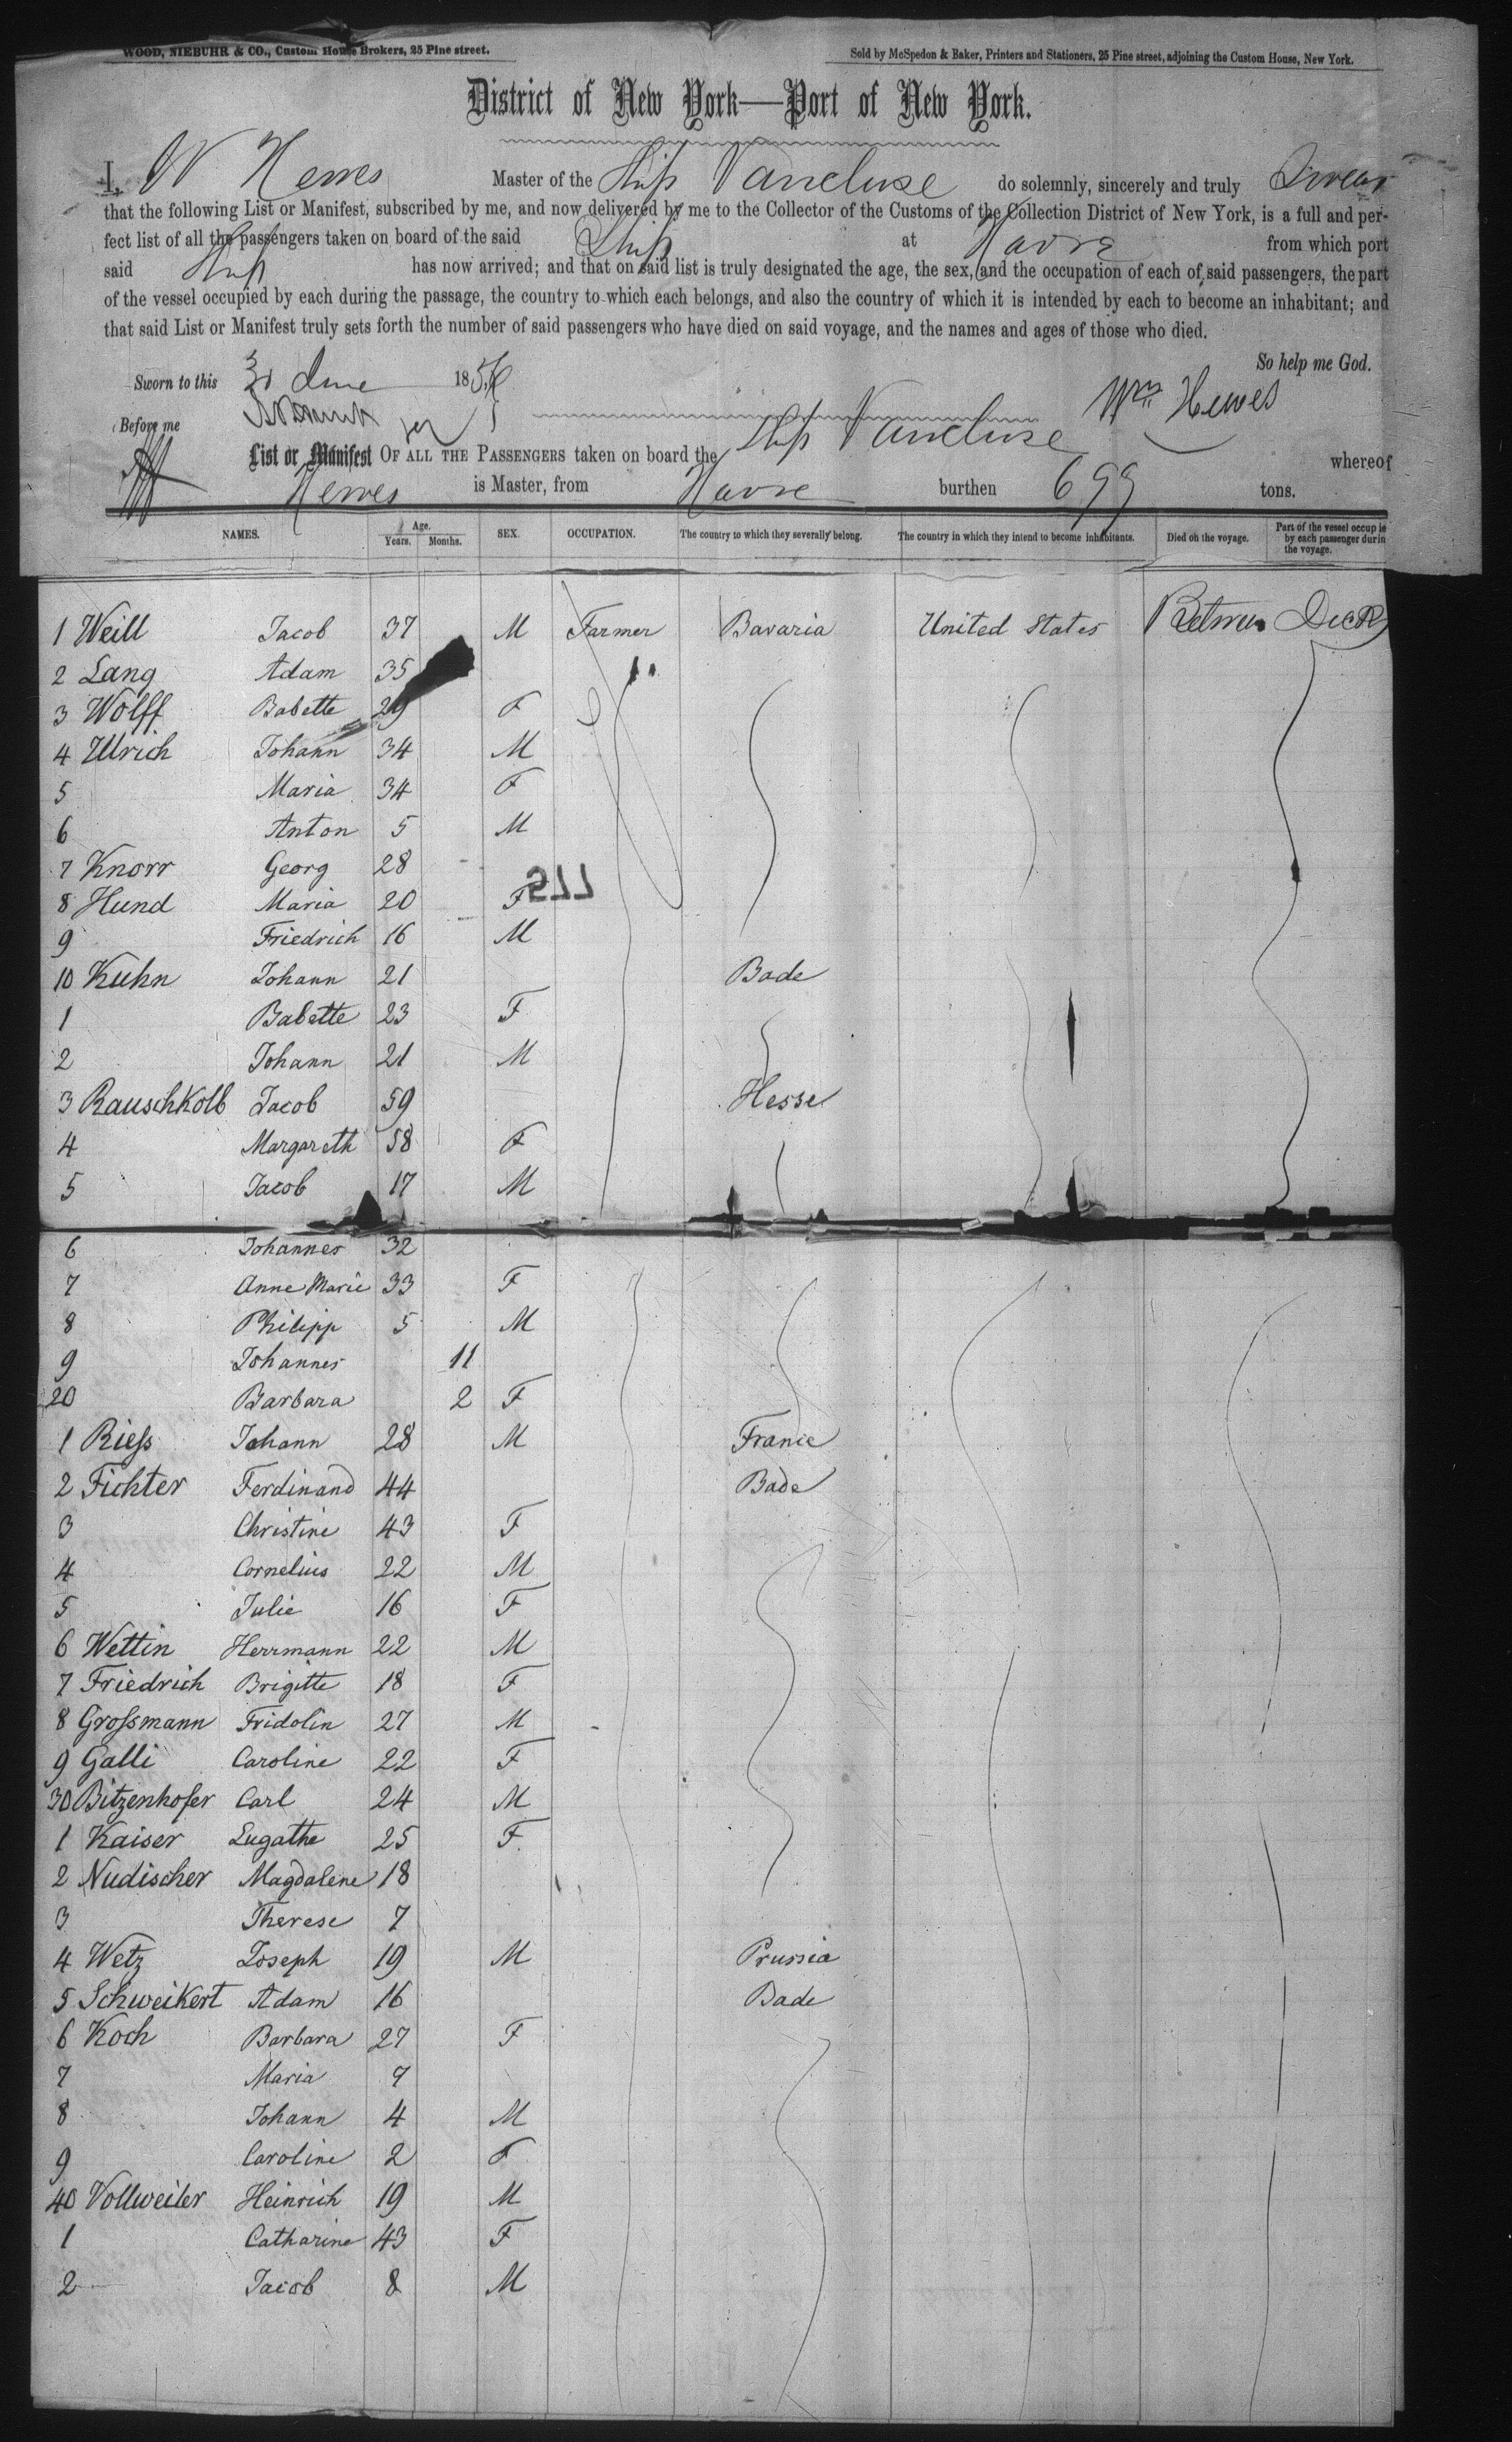 WOOD, NIEBUHR & CO., Custom House Brokers, 25 Pine street.
Sold by McSpedon & Baker, Printers and Stationers, 25 Pine street, adjoining the Custom House, New York.
District of New York—Port of New York.
I, W Hewes Master of the Ship Vancluse do solemnly, sincerely and truly Swear
that the following List or Manifest, subscribed by me, and now delivered by me to the Collector of the Customs of the Collection District of New York, is a full and per-
fect list of all the passengers taken on board of the said Ship at Havre from which port
said Ship has now arrived; and that on said list is truly designated the age, the sex, and the occupation of each of said passengers, the part
of the vessel occupied by each during the passage, the country to which each belongs, and also the country of which it is intended by each to become an inhabitant; and
that said List or Manifest truly sets forth the number of said passengers who have died on said voyage, and the names and ages of those who died.
So help me God.
Sworn to this 3 June 185
Wm Hewes
Before me
List or Manifest OF ALL THE PASSENGERS taken on board the Ship Vancluse whereof
Hewes is Master, from Havre burthen 699 tons.
NAMES. Age. Years. Months. SEX. OCCUPATION. The country to which they severally belong. The country in which they intend to become inhabitants. Died on the voyage. Part of the vessel occupie by each passenger durin the voyage.
1 Weill Jacob 37 M Farmer Bavaria United States Between Deck
2 Lang Adam 35 "
3 Wolff Babette 29 F
4 Ulrich Johann 34 M
5 Maria 34 F
6 Anton 5 M
7 Knorr Georg 28
8 Hund Maria 20 F
577
9 Friedrich 16 M
10 Kuhn Johann 21 Bade
1 Babette 23 F
2 Johann 21 M
3 Rauschkolb Jacob 59 Hesse
4 Margareth 58 F
5 Jacob 17 M
6 Johannes 32
7 Anne Marie 33 F
8 Philipp 5 M
9 Johannes 11
20 Barbara 2 F
1 Riess Johann 28 M France
2 Fichter Ferdinand 44 Bade
3 Christine 43 F
4 Cornelius 22 M
5 Julie 16 F
6 Wettin Herrmann 22 M
7 Friedrich Brigitte 18 F
8 Grossmann Fridolin 27 M
9 Galli Caroline 22 F
30 Bitzenhofer Carl 24 M
1 Kaiser Lugathe 25 F
2 Nudischer Magdalene 18
3 Therese 7
4 Wetz Joseph 19 M Prussia
5 Schweikert Adam 16 Bade
6 Koch Barbara 27 F
7 Maria 9
8 Johann 4 M
9 Caroline 2 F
40 Vollweiler Heinrich 19 M
1 Catharine 43 F
2 Jacob 8 M